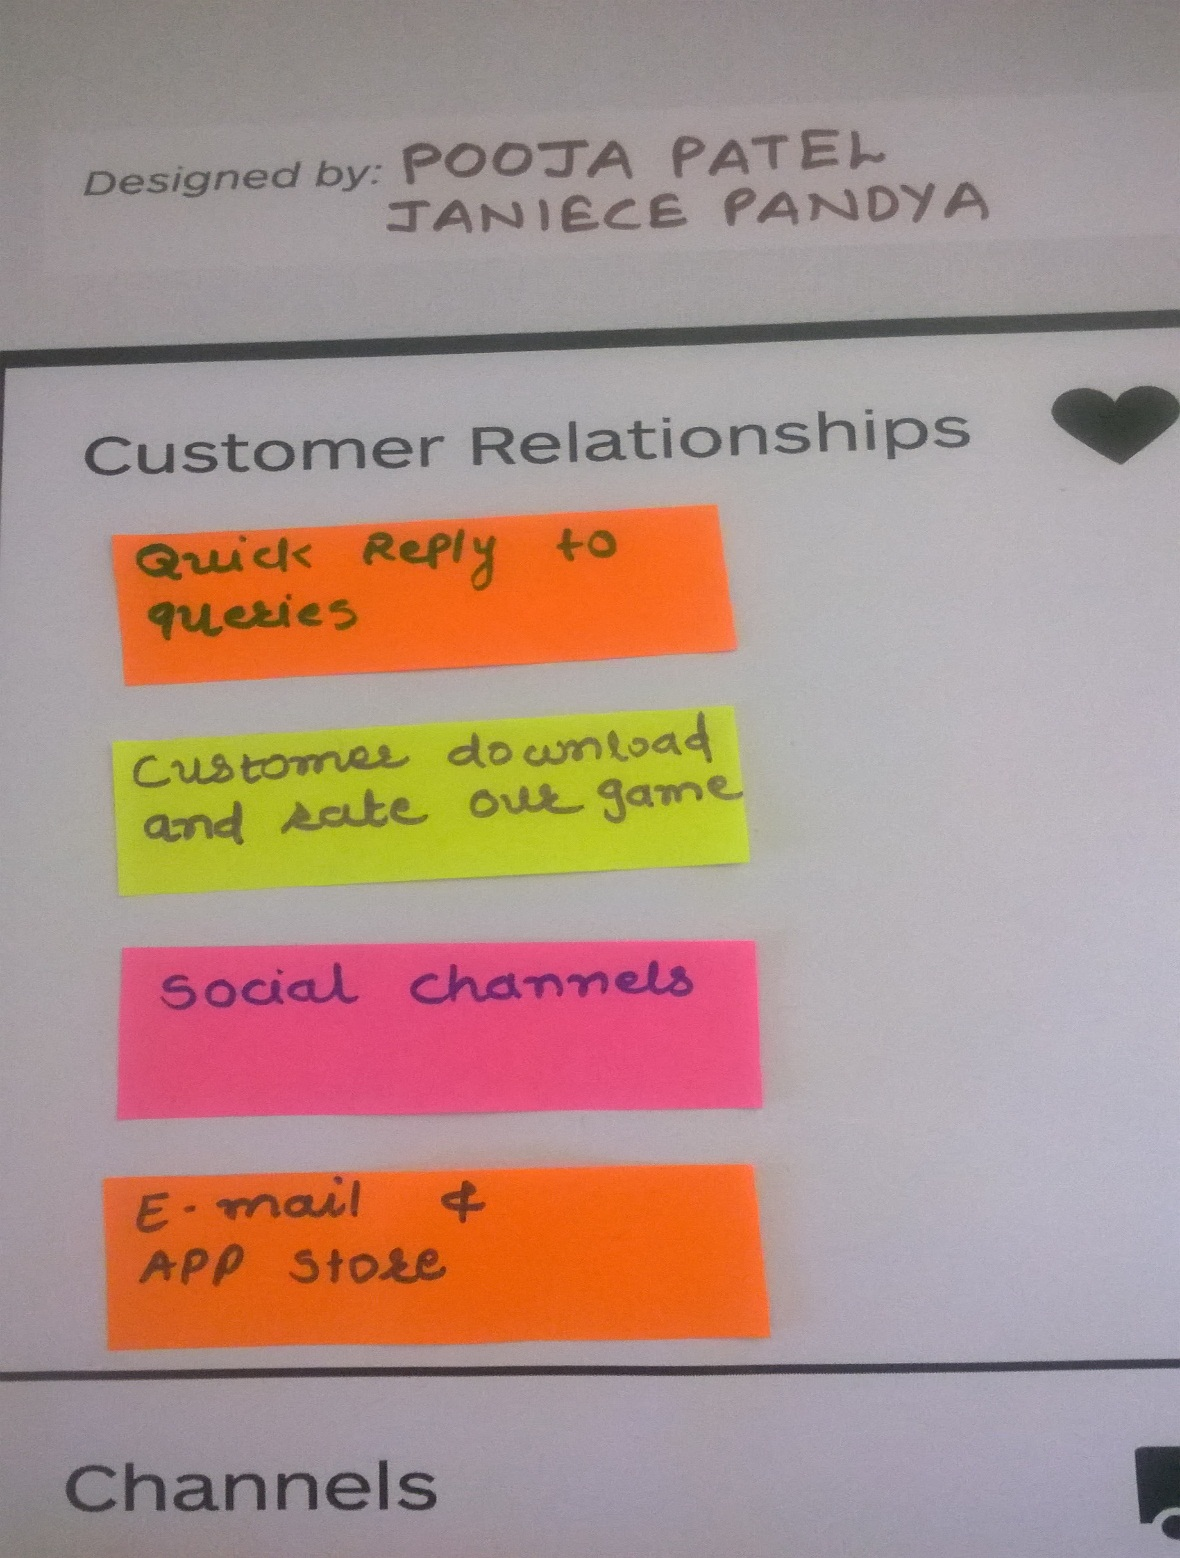 Designed by: POOJA PATEL
JANIECE PANDYA
Customer Relationships
Quick Reply to
queries
Customer download
and rate our game
Social channels
E-mail &
APP Store
Channels